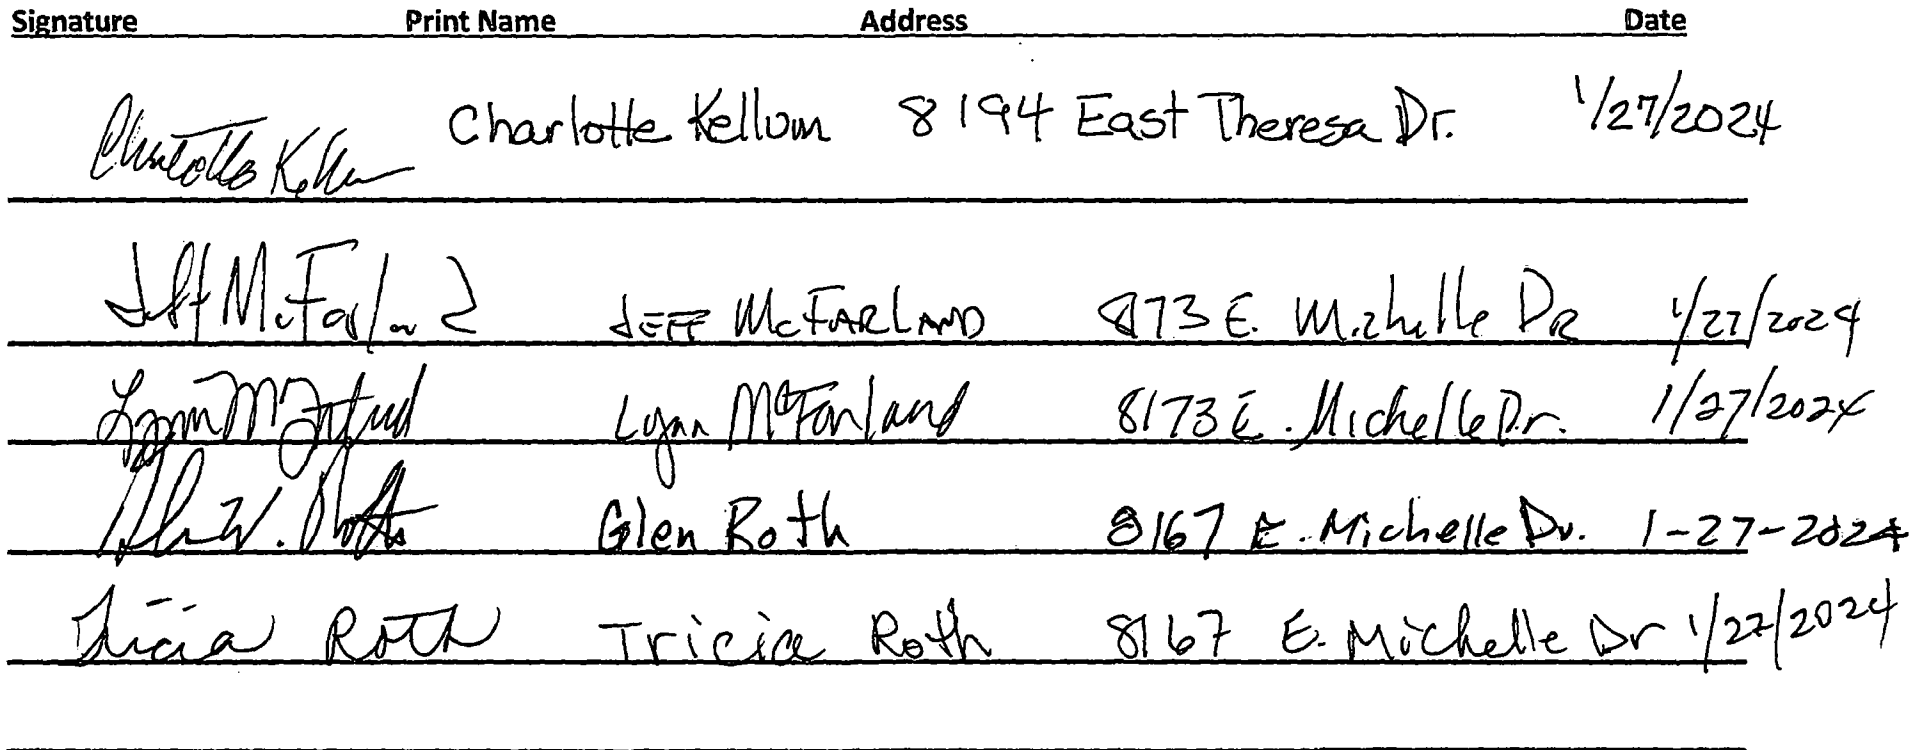 Signature Print Name Address Date
Charlotte Kellum Charlotte Kellum 8194 East Theresa Dr. 1/27/2024
Jeff McFarland JEFF McFARLAND 8173 E. Michelle DR 1/27/2024
Lynn McFarland Lynn McFarland 8173 E. Michelle Dr. 1/27/2024
Glen Roth 8167 E. Michelle Dr. 1-27-2024
Tricia Roth Tricia Roth 8167 E. Michelle Dr 1/27/2024